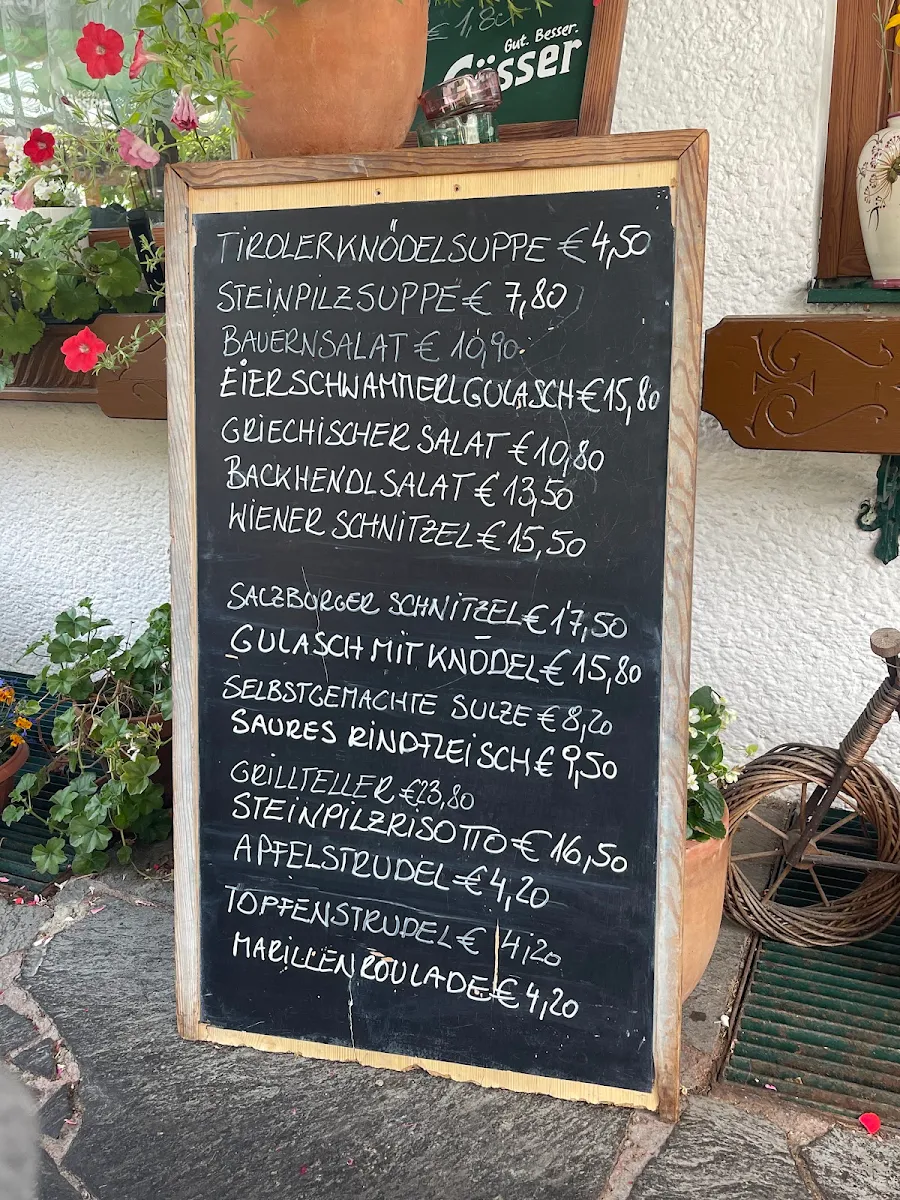 € 1,80
Gut. Besser.
Gösser
TIROLERKNÖDELSUPPE € 4,50
STEINPILZSUPPE € 7,80
BAUERNSALAT € 10,90
EIERSCHWAMMERLGULASCH € 15,80
GRIECHISCHER SALAT € 10,80
BACKHENDLSALAT € 13,50
WIENER SCHNITZEL € 15,50
SALZBURGER SCHNITZEL € 17,50
GULASCH MIT KNÖDEL € 15,80
SELBSTGEMACHTE SULZE € 8,20
SAURES RINDFLEISCH € 9,50
GRILLTELLER € 23,80
STEINPILZRISOTTO € 16,50
APFELSTRUDEL € 4,20
TOPFENSTRUDEL € 4,20
MARILLENROULADE € 4,20